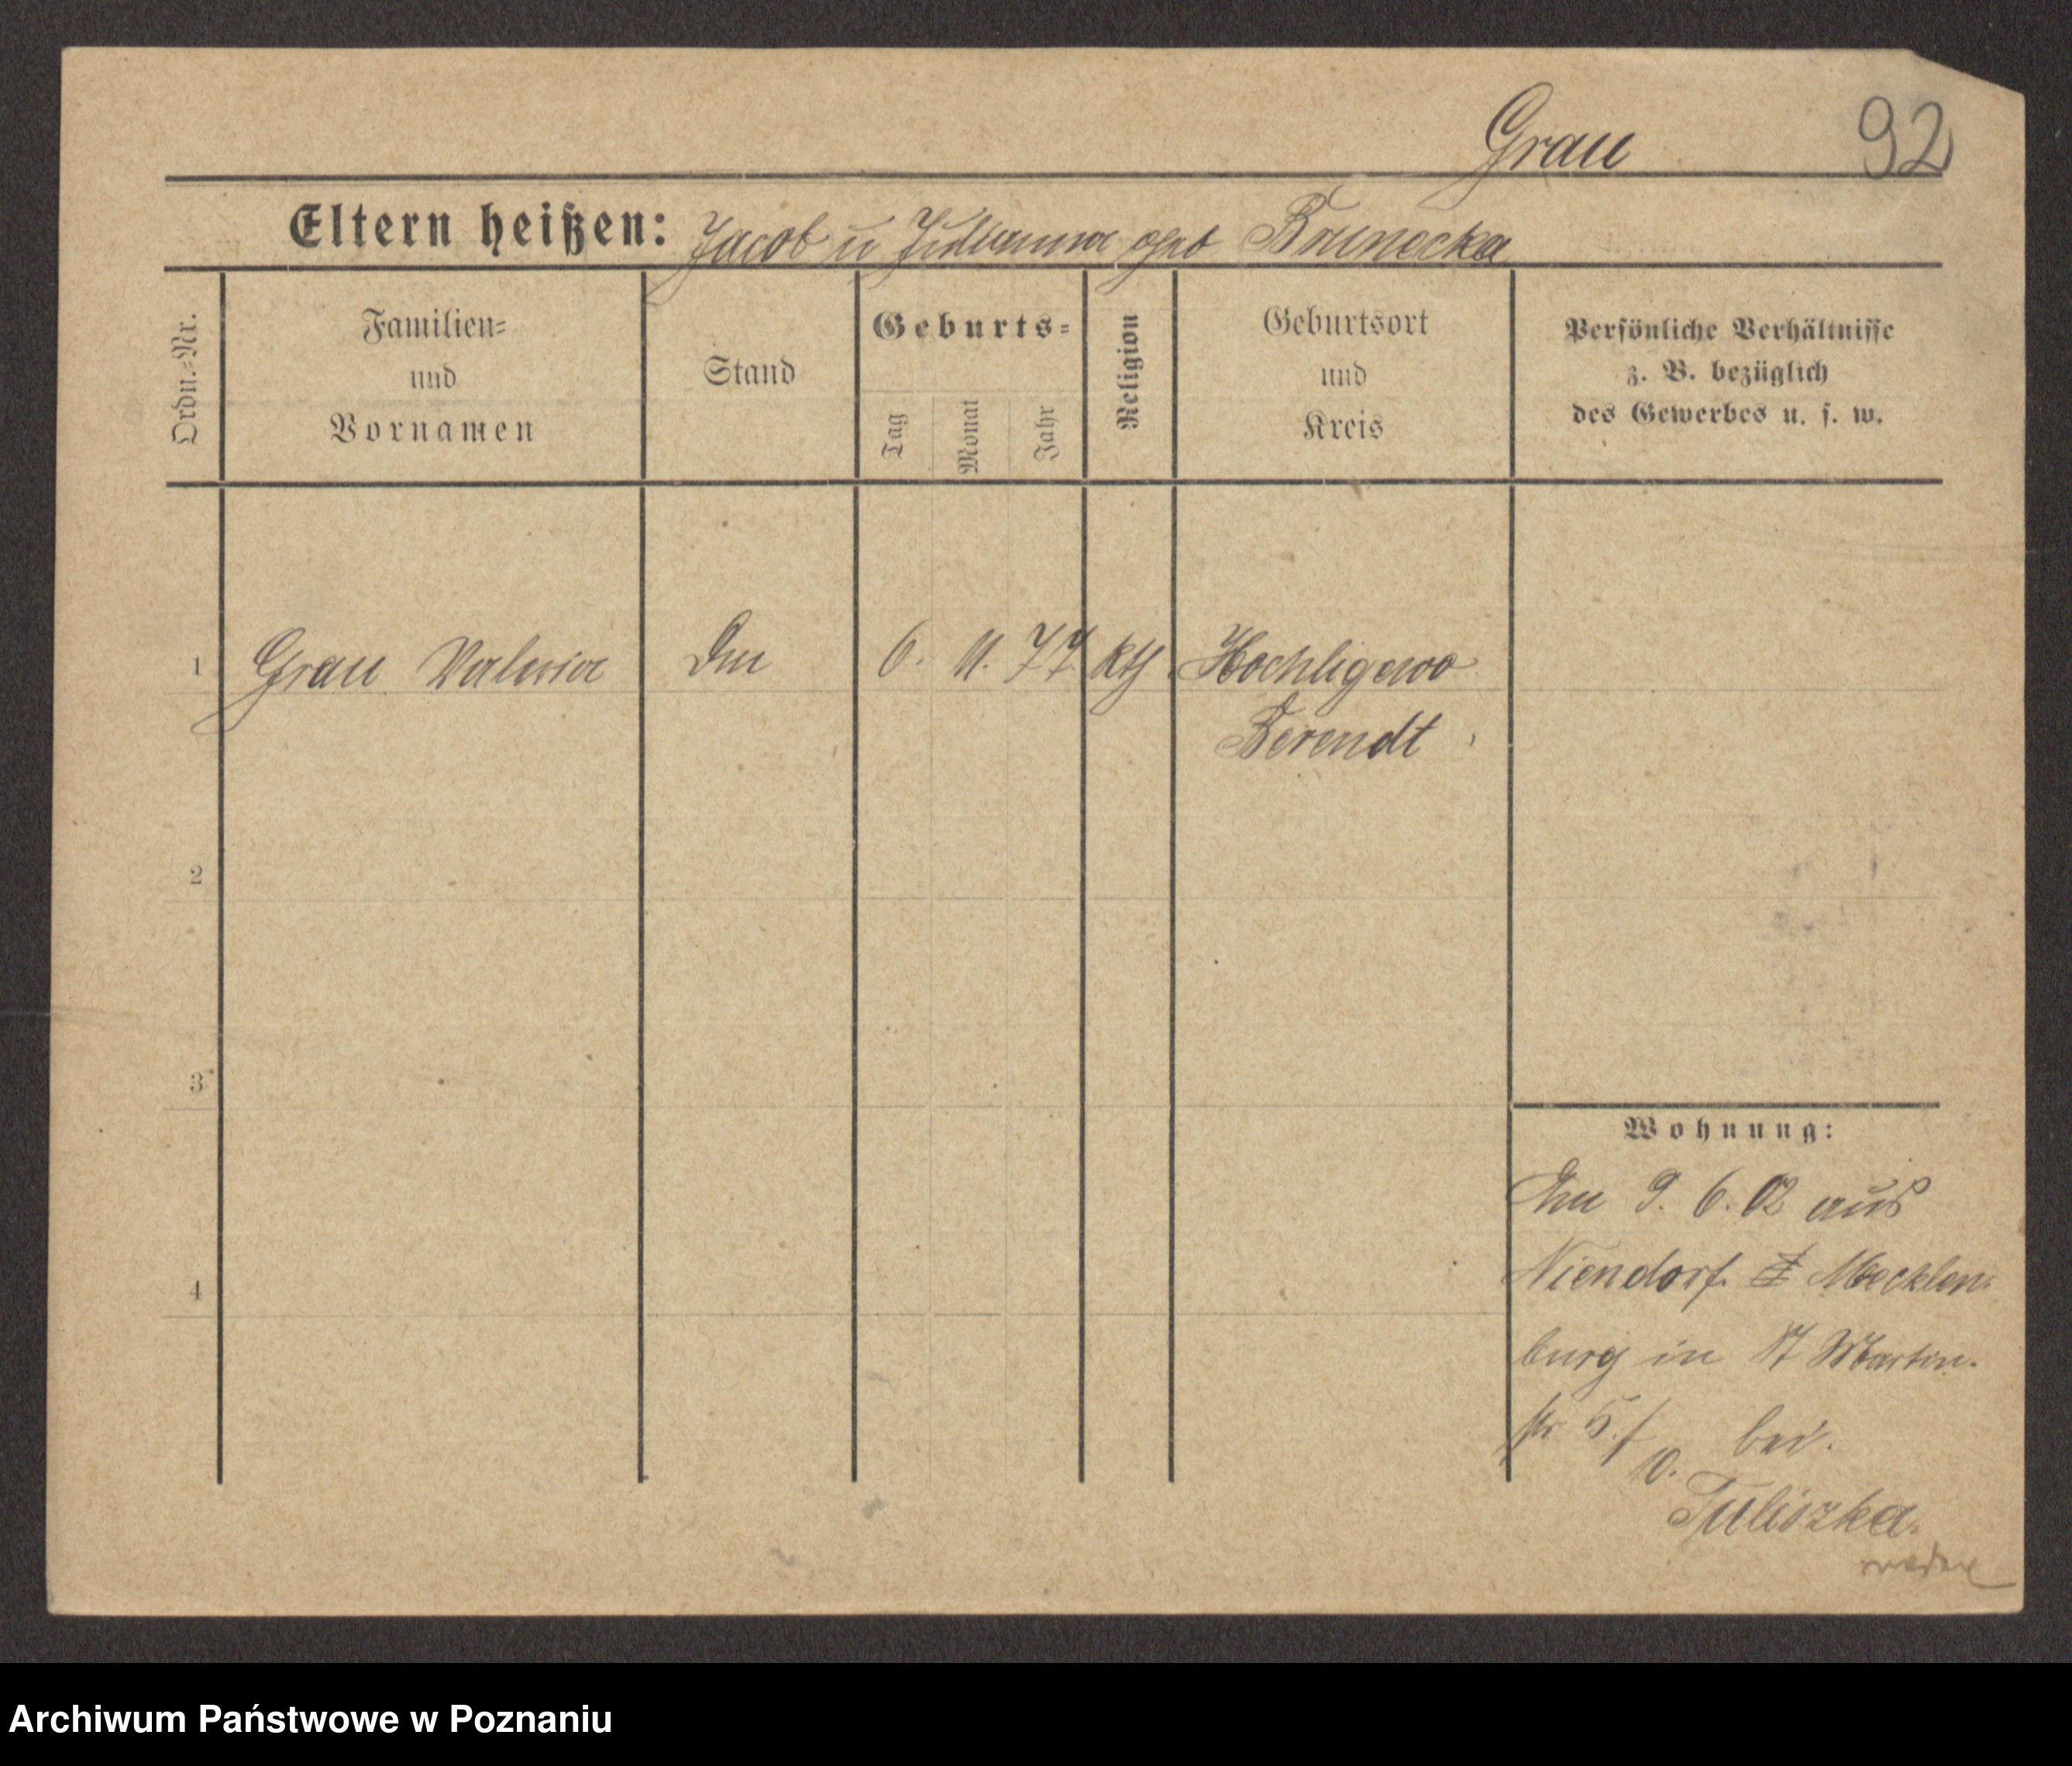 Grau 92
Eltern heißen: Jacob u Julianna geb Brunecka
Ordn.-Nr.
Familien-
und
Vornamen
Stand
Geburts-
Tag
Monat
Jahr
Religion
Geburtsort
und
Kreis
Persönliche Verhältnisse
z. B. bezüglich
des Gewerbes u. s. w.
1 Grau Valeria 6. 11. 77 kth. Hochligewo
Berendt
2
3
4
Wohnung:
9. 6. 02 aus
Niendorf Mecklen-
burg in St Martin-
str 5./
10. bei
Tuliszka.
Archiwum Państwowe w Poznaniu